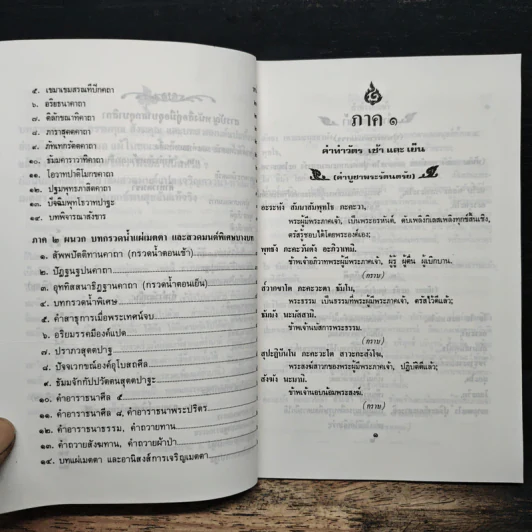 ๕. เขมาเขมสรณทีปิกคาถา
๖. อริยธนคาถา
๗. ติลักขณาทิคาถา
๘. ภารสุตตคาถา
๙. ภัทเทกรัตตคาถา
๑๐. ธัมมคารวาทิคาถา
๑๑. โอวาทปาติโมกขคาถา
๑๒. ปฐมพุทธภาสิตคาถา
๑๓. ปัจฉิมพุทโธวาทปาฐะ
๑๔. บทพิจารณาสังขาร
ภาค ๒ ผนวก บทกรวดน้ำแผ่เมตตา และสวดมนต์พิเศษบางบท
๑. สัพพปัตติทานคาถา (กรวดน้ำตอนเช้า)
๒. ปัฏฐนฐปนคาถา
๓. อุททิสสนาธิฏฐานคาถา (กรวดน้ำตอนเย็น)
๔. บทกรวดน้ำพิเศษ
๕. คำสาธุการเมื่อพระเทศน์จบ
๖. อริยมรรคมีองค์แปด
๗. ปราภวสุตตปาฐ
๘. ปัจจเวกขณ์องค์อุโบสถศีล
๙. ธัมมจักกัปปวัตตนสุตตปาฐะ
๑๐. คำอาราธนาศีล ๕
๑๑. คำอาราธนาศีล ๘, คำอาราธนาพระปริตร
๑๒. คำอาราธนาธรรม, คำถวายทาน
๑๓. คำถวายสังฆทาน, คำถวายผ้าป่า
๑๔. บทแผ่เมตตา และอานิสงส์การเจริญเมตตา
ภาค ๑
คำทำวัตร เช้า และ เย็น
(คำบูชาพระรัตนตรัย)
อะระหัง สัมมาสัมพุทโธ ภะคะวา,
พระผู้มีพระภาคเจ้า, เป็นพระอรหันต์, ดับเพลิงกิเลสเพลิงทุกข์สิ้นเชิง,
ตรัสรู้ชอบได้โดยพระองค์เอง;
พุทธัง ภะคะวันตัง อะภิวาเทมิ.
ข้าพเจ้าอภิวาทพระผู้มีพระภาคเจ้า, ผู้รู้ ผู้ตื่น ผู้เบิกบาน.
(กราบ)
ส๎วากขาโต ภะคะวะตา ธัมโม,
พระธรรม เป็นธรรมที่พระผู้มีพระภาคเจ้า, ตรัสไว้ดีแล้ว;
ธัมมัง นะมัสสามิ.
ข้าพเจ้านมัสการพระธรรม.
(กราบ)
สุปะฏิปันโน ภะคะวะโต สาวะกะสังโฆ,
พระสงฆ์สาวกของพระผู้มีพระภาคเจ้า, ปฏิบัติดีแล้ว;
สังฆัง นะมามิ.
ข้าพเจ้านอบน้อมพระสงฆ์.
(กราบ)
๑